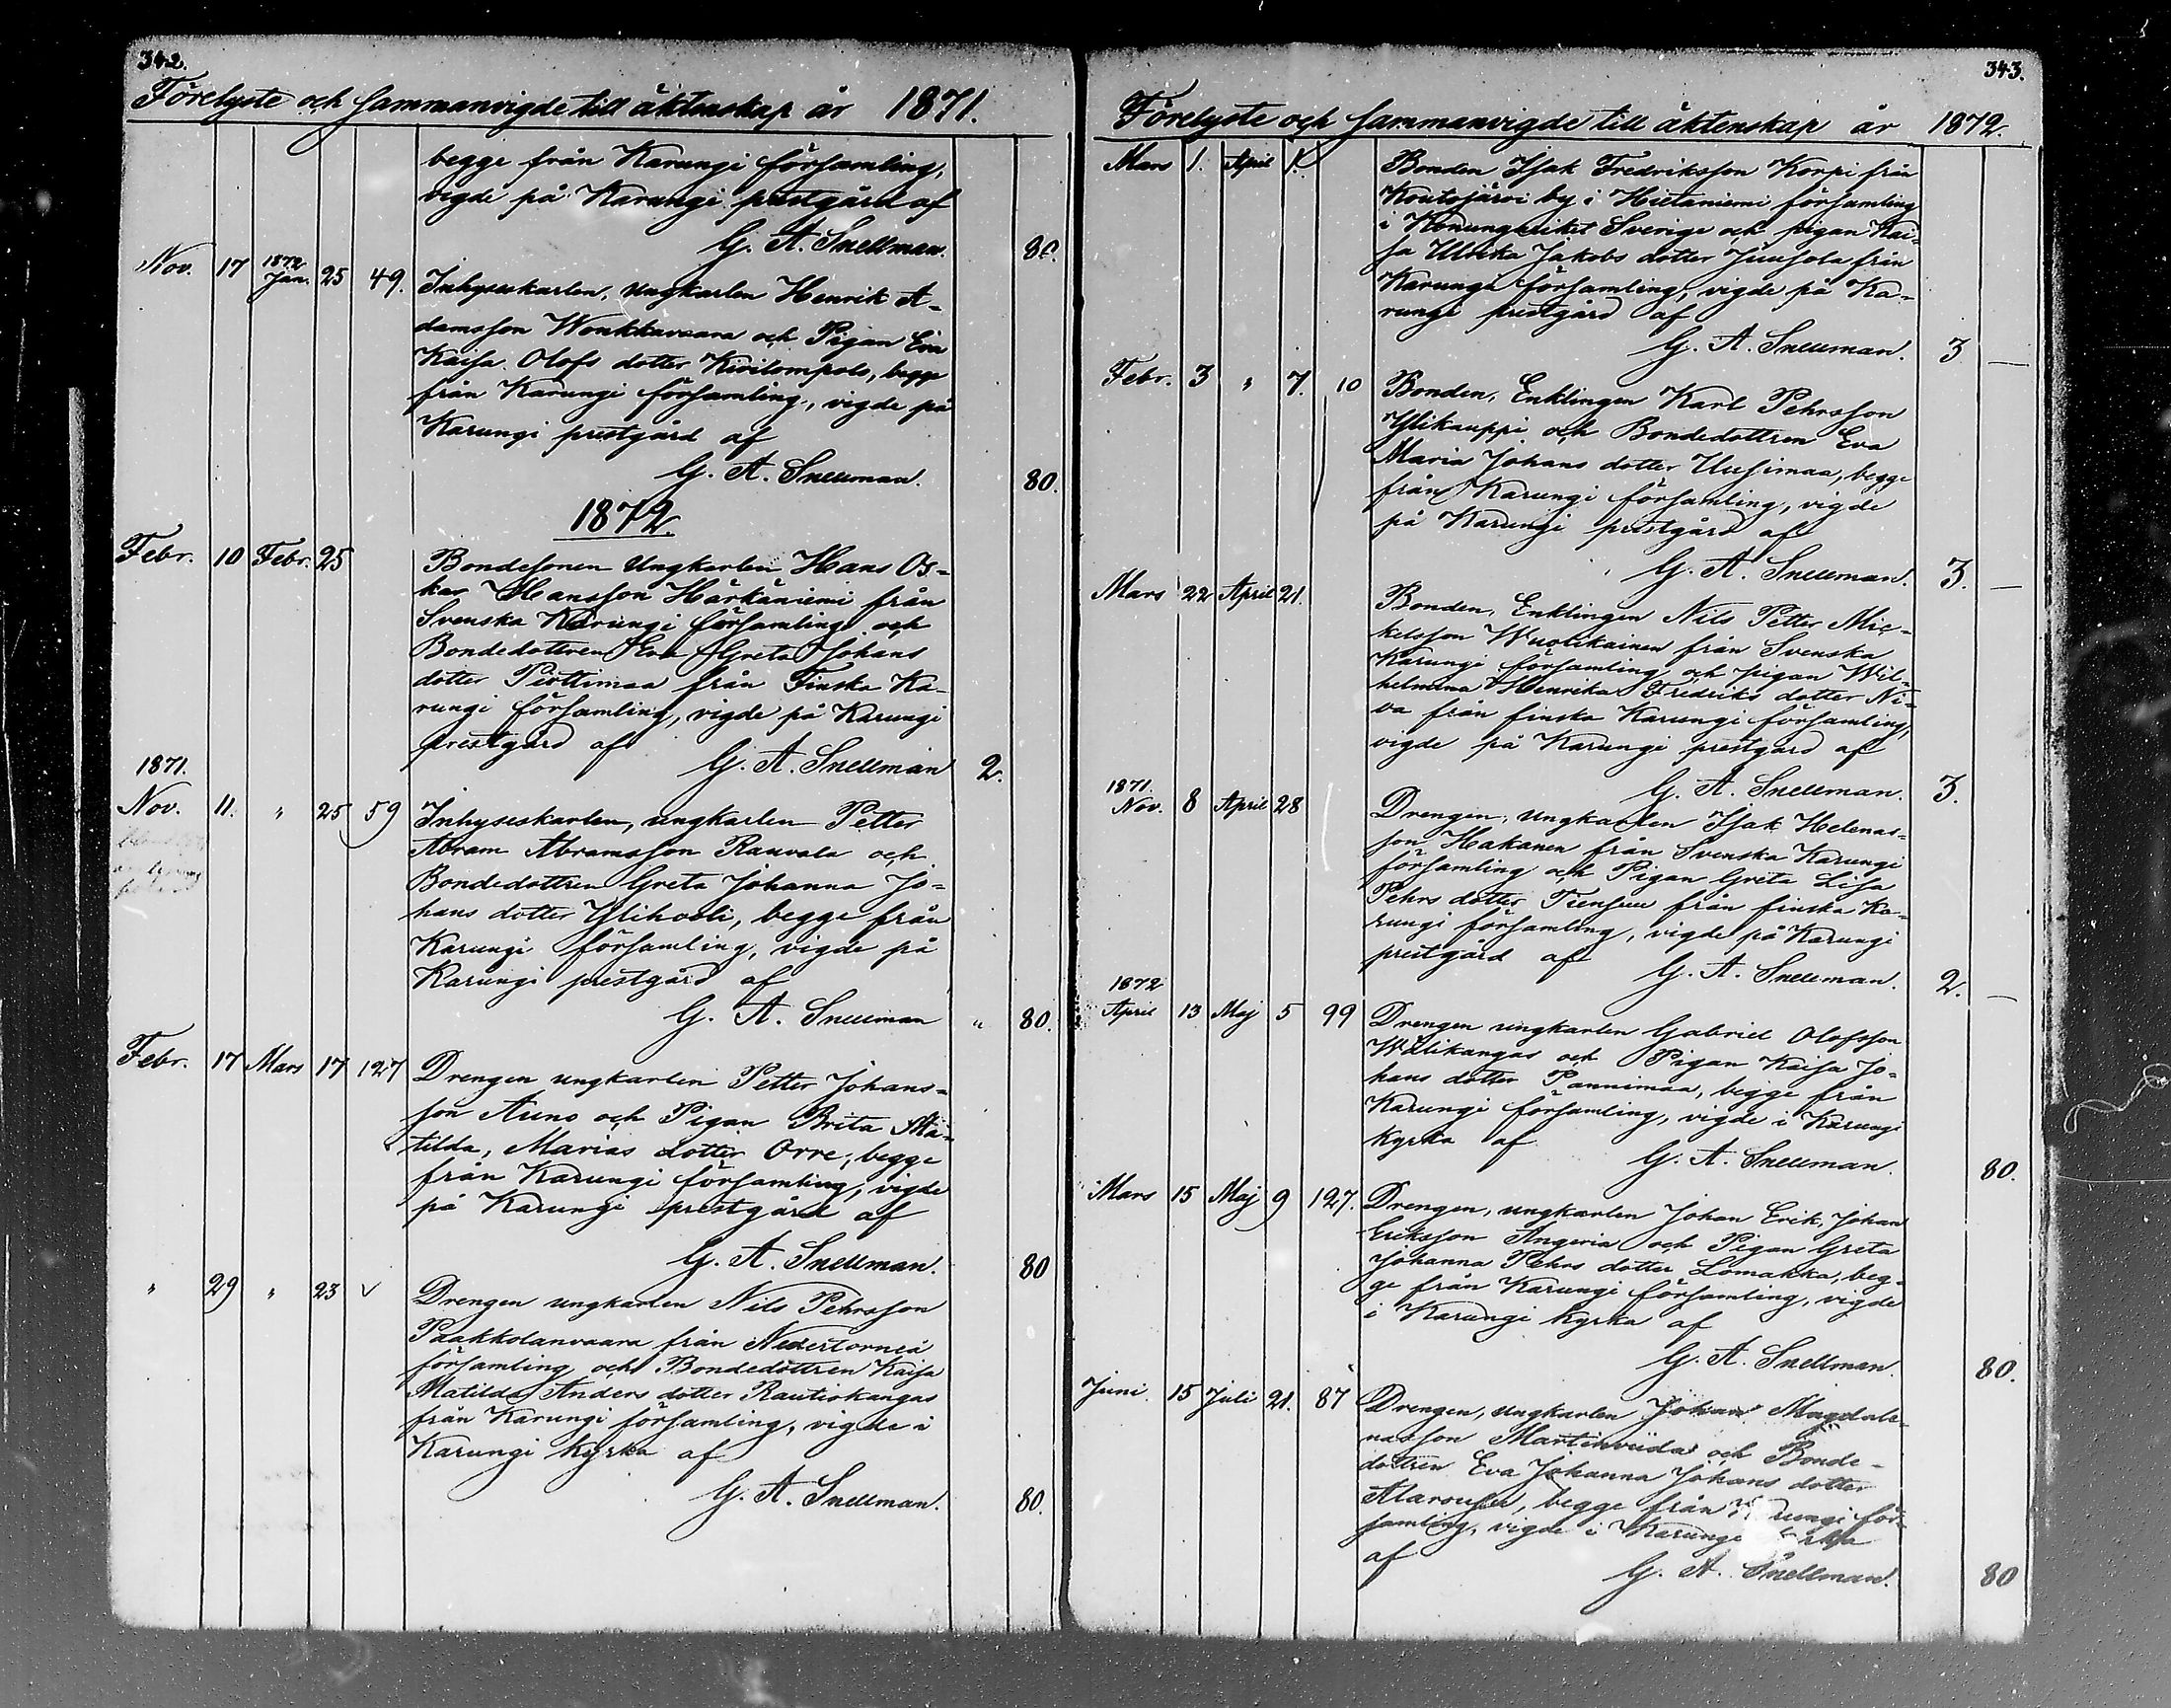 342.
Förelyste och sammanvigde till äktenskap år 1871.
begge från Karungi församling,
vigde på Karungi prestgård af
G. A. Snellman. 80.
Nov. 17 1872 Jan. 25 49. Inhyseskarlen, ungkarlen Henrik A-
damsson Wonkkavaara och Pigan Eva
Kaisa Olofs dotter Kivilompolo, begge
från Karungi församling, vigde på
Karungi prestgård af
G. A. Snellman. 80.
1872.
Febr. 10 Febr. 25 Bondesonen Ungkarlen Hans Os-
kar Hansson Härkäniemi från
Svenska Karungi församling och
Bondedottren Eva Greta Johans
dotter Piöttimaa från Finska Ka-
rungi församling, vigde på Karungi
prestgård af G. A. Snellman 2.
1871.
Nov. 11. " 25 59 Inhyseskarlen, ungkarlen Petter
Abram Abramsson Rauvala och
Bondedottren Greta Johanna Jo-
hans dotter Ylihooli, begge från
Karungi församling, vigde på
Karungi prestgård af
G. A. Snellman " 80.
Febr. 17 Mars 17 127 Drengen ungkarlen Petter Johans-
son Auno och Pigan Brita Ma-
tilda, Marias dotter Orre, begge
från Karungi församling, vigde
på Karungi prestgård af
G. A. Snellman. 80
" 29 " 23 v Drengen ungkarlen Nils Pehrsson
Paakkolanvaara från Nedertorneå
församling och Bondedottren Kaisa
Matilda Anders dotter Rautiokangas
från Karungi församling, vigde i
Karungi kyrka af
G. A. Snellman. 80.
343.
Förelyste och sammanvigde till äktenskap år 1872.
Mars 1. April 1. Bonden Isak Fredriksson Korpi från
Koutojärvi by i Hietaniemi församling
i Konungariket Sverige och pigan Kai-
sa Ulrika Jakobs dotter Juusola från
Karungi församling, vigde på Ka-
rungi prestgård af
G. A. Snellman. 3 —
Febr. 3 " 7. 10 Bonden, Enklingen Karl Pehrsson
Ylikauppi och Bondedottren Eva
Maria Johans dotter Uusimaa, begge
från Karungi församling, vigde
på Karungi prestgård af
G. A. Snellman. 3. —
Mars 22 April 21. Bonden, Enklingen Nils Petter Mic-
kelsson Wuolikainen från Svenska
Karungi församling och pigan Wil-
helmina Henrika Fredriks dotter Ni-
va från finska Karungi församling,
vigde på Karungi prestgård af
G. A. Snellman. 3.
1871.
Nov. 8 April 28 Drengen, ungkarlen Isak Helenas-
son Hakanen från Svenska Karungi
församling och Pigan Greta Lisa
Pehrs dotter Tiensuu från finska Ka-
rungi församling, vigde på Karungi
prestgård af G. A. Snellman. 2. —
1872
April 13 Maj 5 99 Drengen ungkarlen Gabriel Olofsson
Wälikangas och Pigan Kaisa Jo-
hans dotter Pannimaa, begge från
Karungi församling, vigde i Karungi
Kyrka af
G. A. Snellman. 80.
Mars 15 Maj 9 127. Drengen, ungkarlen Johan Erik, Johan
Eriksson Angeria och Pigan Greta
Johanna Pehrs dotter Lomakka, beg-
ge från Karungi församling, vigde
i Karungi kyrka af
G. A. Snellman. 80.
Juni 15 Juli 21. 87 Drengen, ungkarlen Johan Magdale-
nasson Martinviida och Bonde-
dottren Eva Johanna Johans dotter
Alarousu, begge från Karungi för-
samling, vigde i Karungi
af
G. A. Snellman. 80